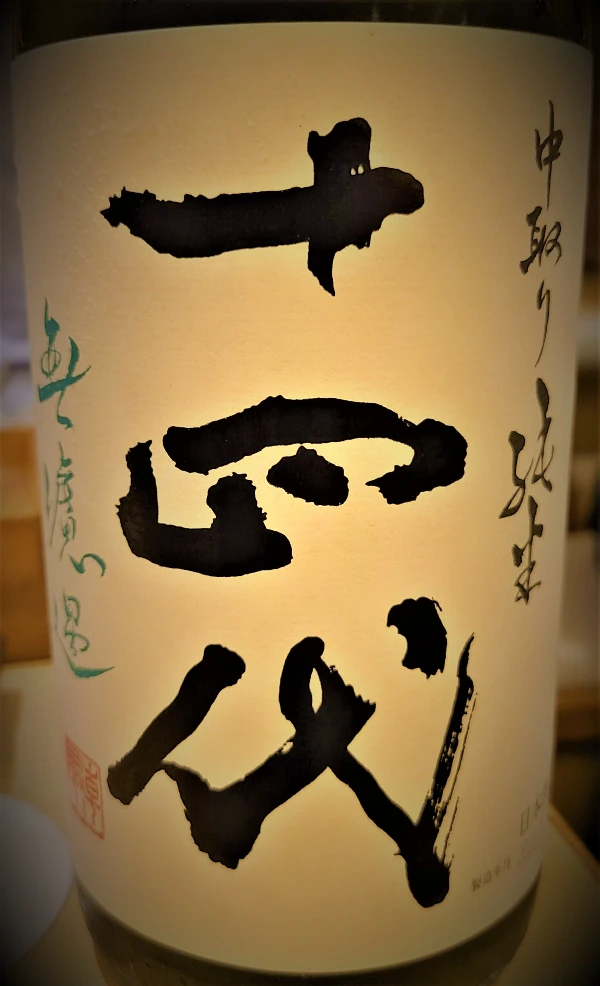 中取り純米
十四代
無濾過
日本
製造年月